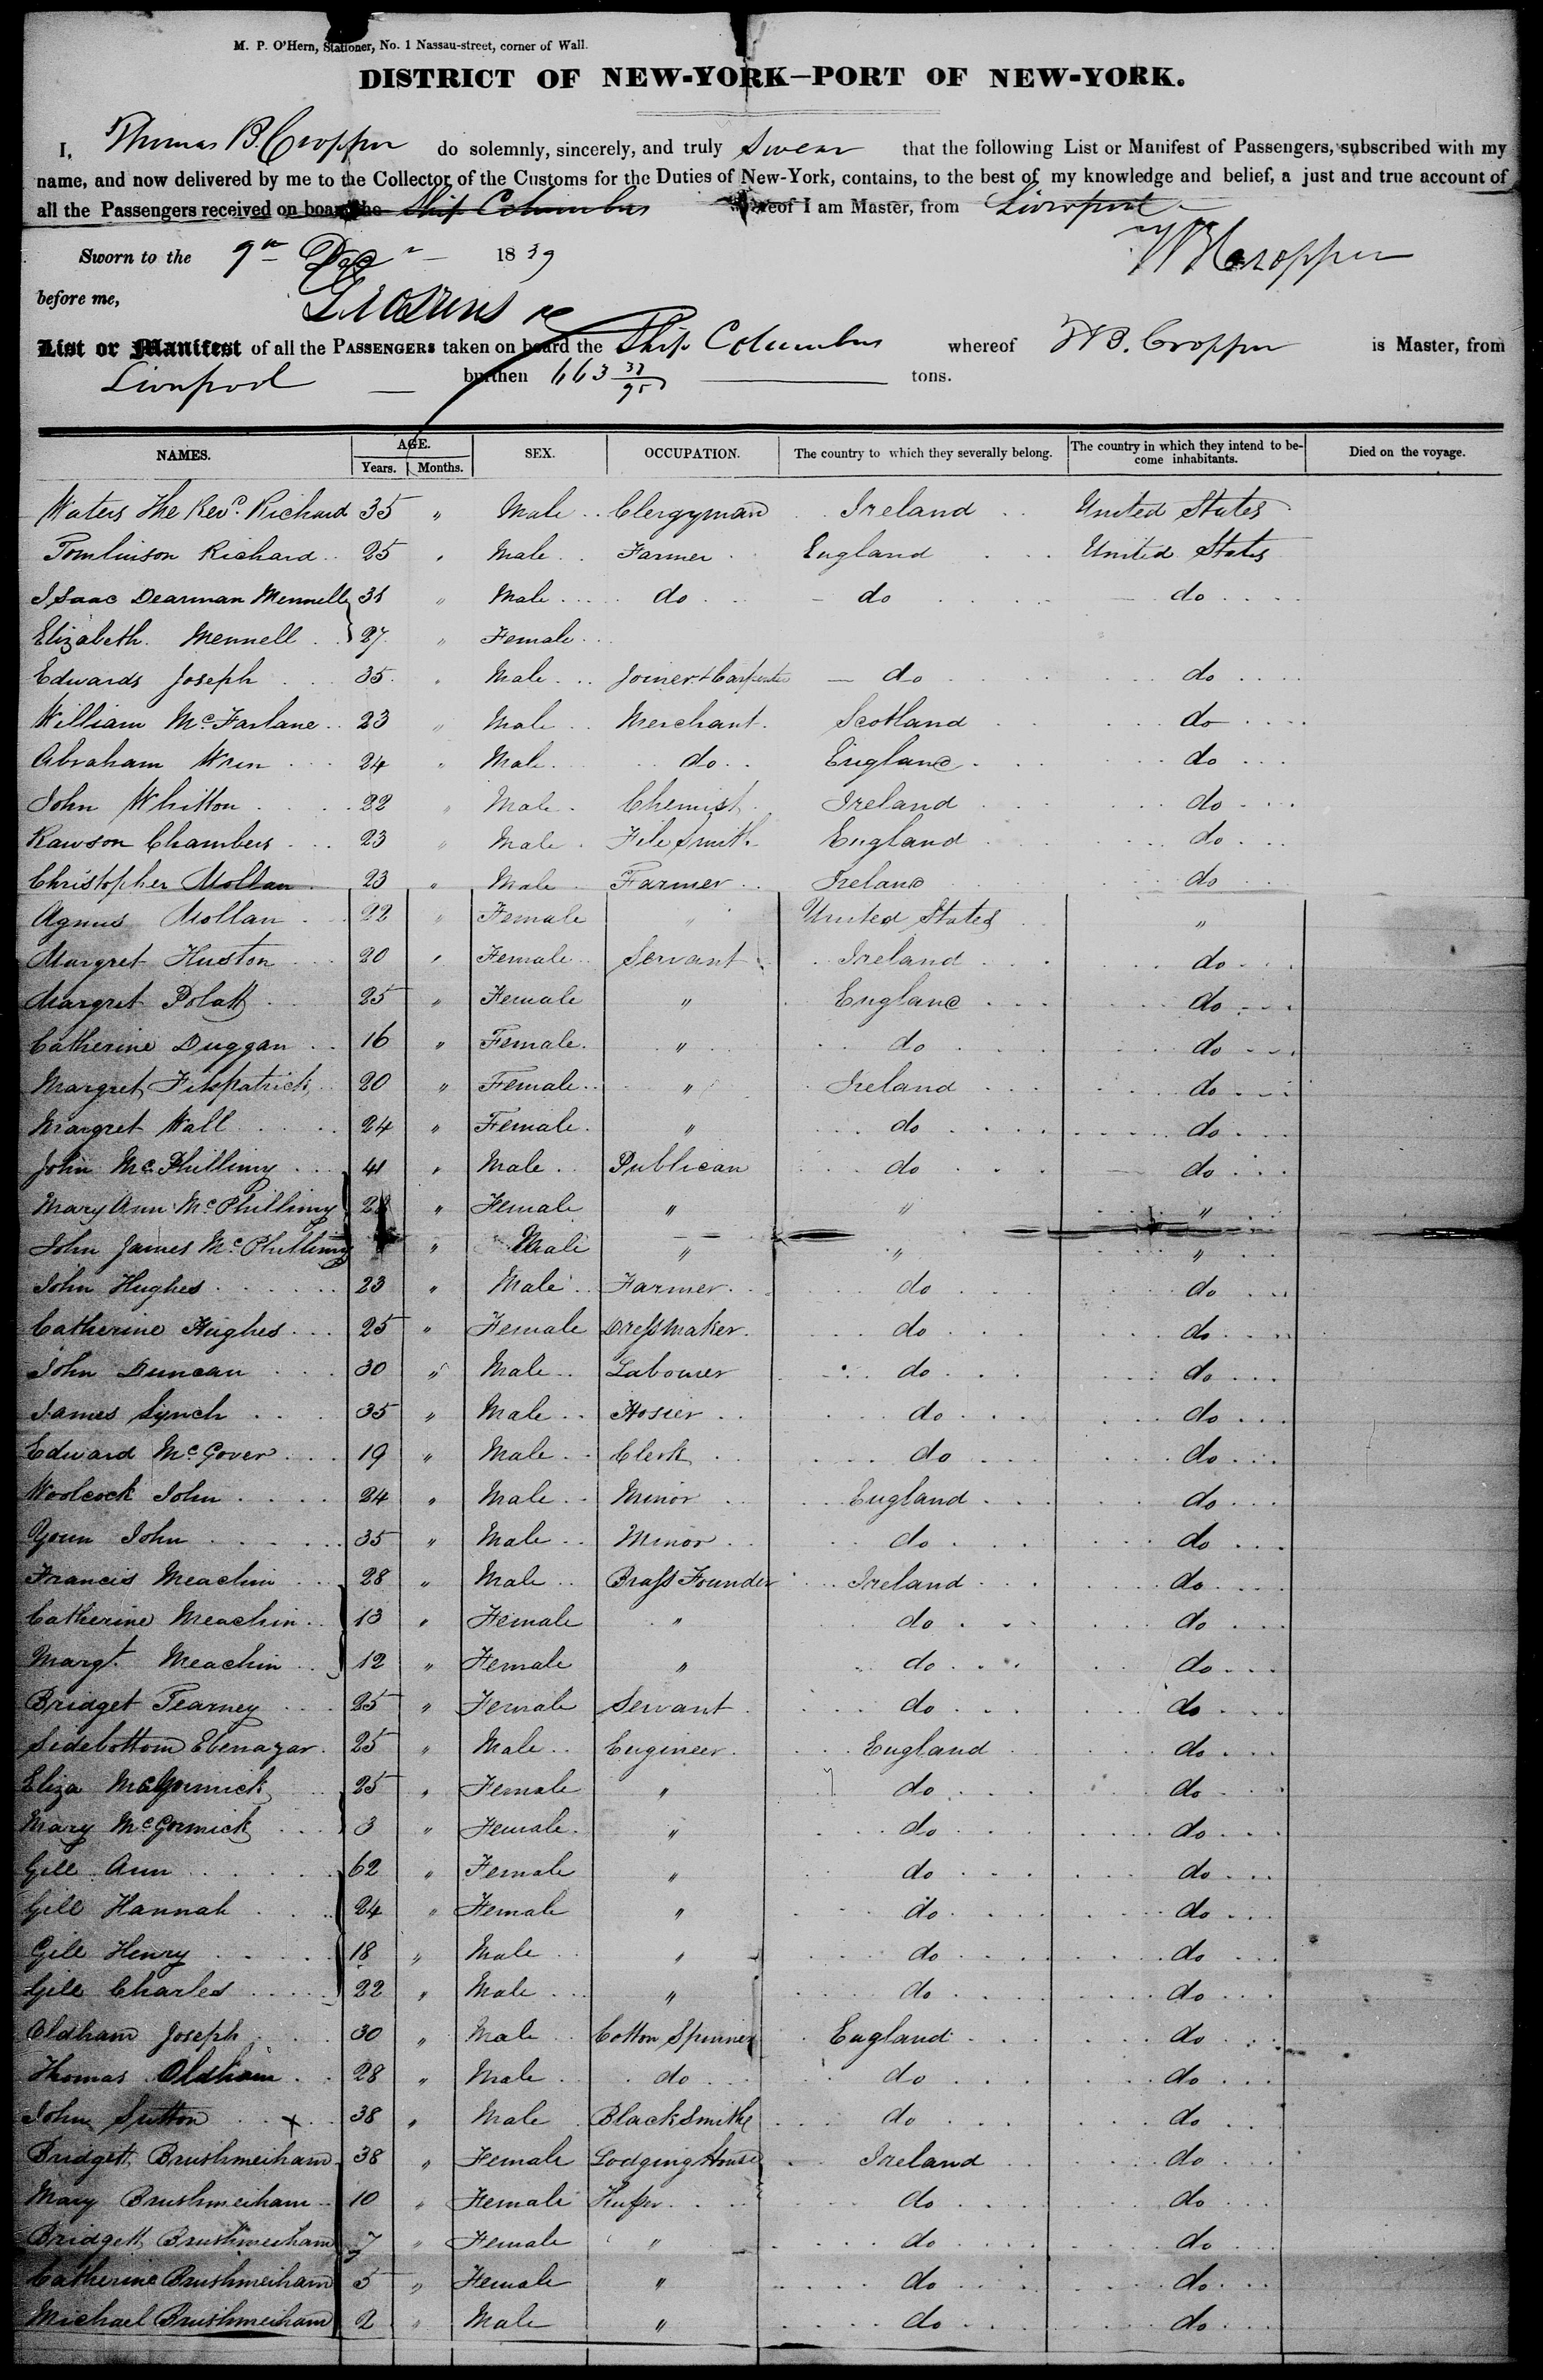 M. P. O'Hern, Stationer, No. 1 Nassau-street, corner of Wall.
DISTRICT OF NEW-YORK—PORT OF NEW-YORK.
I, Thomas B. Cropper do solemnly, sincerely, and truly Swear that the following List or Manifest of Passengers, subscribed with my
name, and now delivered by me to the Collector of the Customs for the Duties of New-York, contains, to the best of my knowledge and belief, a just and true account of
all the Passengers received on board the Ship Columbus whereof I am Master, from Liverpool
Sworn to the 9th Dec 1839 Cropper
before me,
List or Manifest of all the PASSENGERS taken on board the Ship Columbus whereof B. Cropper is Master, from
Liverpool burthen 663 tons.
NAMES. AGE. Years. Months. SEX. OCCUPATION. The country to which they severally belong. The country in which they intend to become inhabitants. Died on the voyage.
Waters The Revd. Richard 35 " Male Clergyman Ireland United States
Tomlinson Richard 25 " Male Farmer England United States
Isaac Dearman Mennell " Male do do do
Elizabeth Mennell 27 " Female
Edwards Joseph 35 " Male Joiner & Carpenter do do
William McFarlane 23 " Male Merchant Scotland do
Abraham Wren 24 " Male do England do
John Whitton 22 " Male Chemist Ireland do
Rawson Chambers 23 " Male File Smith England do
Christopher Mollan 23 " Male Farmer Ireland do
Agnus Mollan 22 " Female " United States "
Margret Huston 20 " Female Servant Ireland do
Margret Polatt 25 " Female " England do
Catherine Duggan 16 " Female " do do
Margret Fitspatrick 20 " Female " Ireland do
Margret Wall 24 " Female " do do
John McPhillimy 41 " Male Publican do do
Mary Ann McPhillimy " Female " " "
John James McPhillimy " Male " " "
John Hughes 23 " Male Farmer do do
Catherine Hughes 25 " Female Dressmaker do do
John Duncan 30 " Male Labourer do do
James Lynch 35 " Male Hosier do do
Edward McGover 19 " Male Clerk do do
Woolcock John 24 " Male Minor England do
Youn John 35 " Male Minor do do
Francis Meachin 28 " Male Brass Founder Ireland do
Catherine Meachin 13 " Female " do do
Margt. Meachin 12 " Female " do do
Bridget Tearney 25 " Female Servant do do
Sidebottom Ebenazar 25 " Male Engineer England do
Eliza McGormick 25 " Female " do do
Mary McGormick 3 " Female " do do
Gill Ann 62 " Female " do do
Gill Hannah 24 " Female " do do
Gill Henry 18 " Male " do do
Gill Charles 22 " Male " do do
Oldham Joseph 30 " Male Cotton Spinner England do
Thomas Oldham 28 " Male do do do
John Sutton x 38 " Male BlackSmith do do
Bridgett Brushmeiham 38 " Female Lodging House Ireland do
Mary Brushmeiham 10 " Female Keeper do do
Bridgett Brushmeiham 7 " Female " do do
Catherine Brushmeiham 5 " Female " do do
Michael Brushmeiham 2 " Male " do do